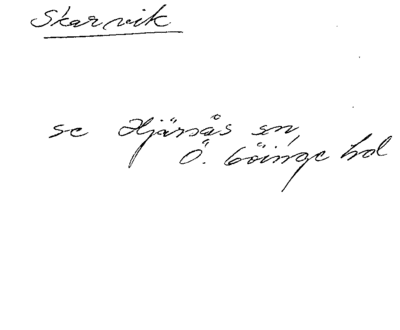 Skarvik
se Hjärsås sn,
Ö. Göinge hd